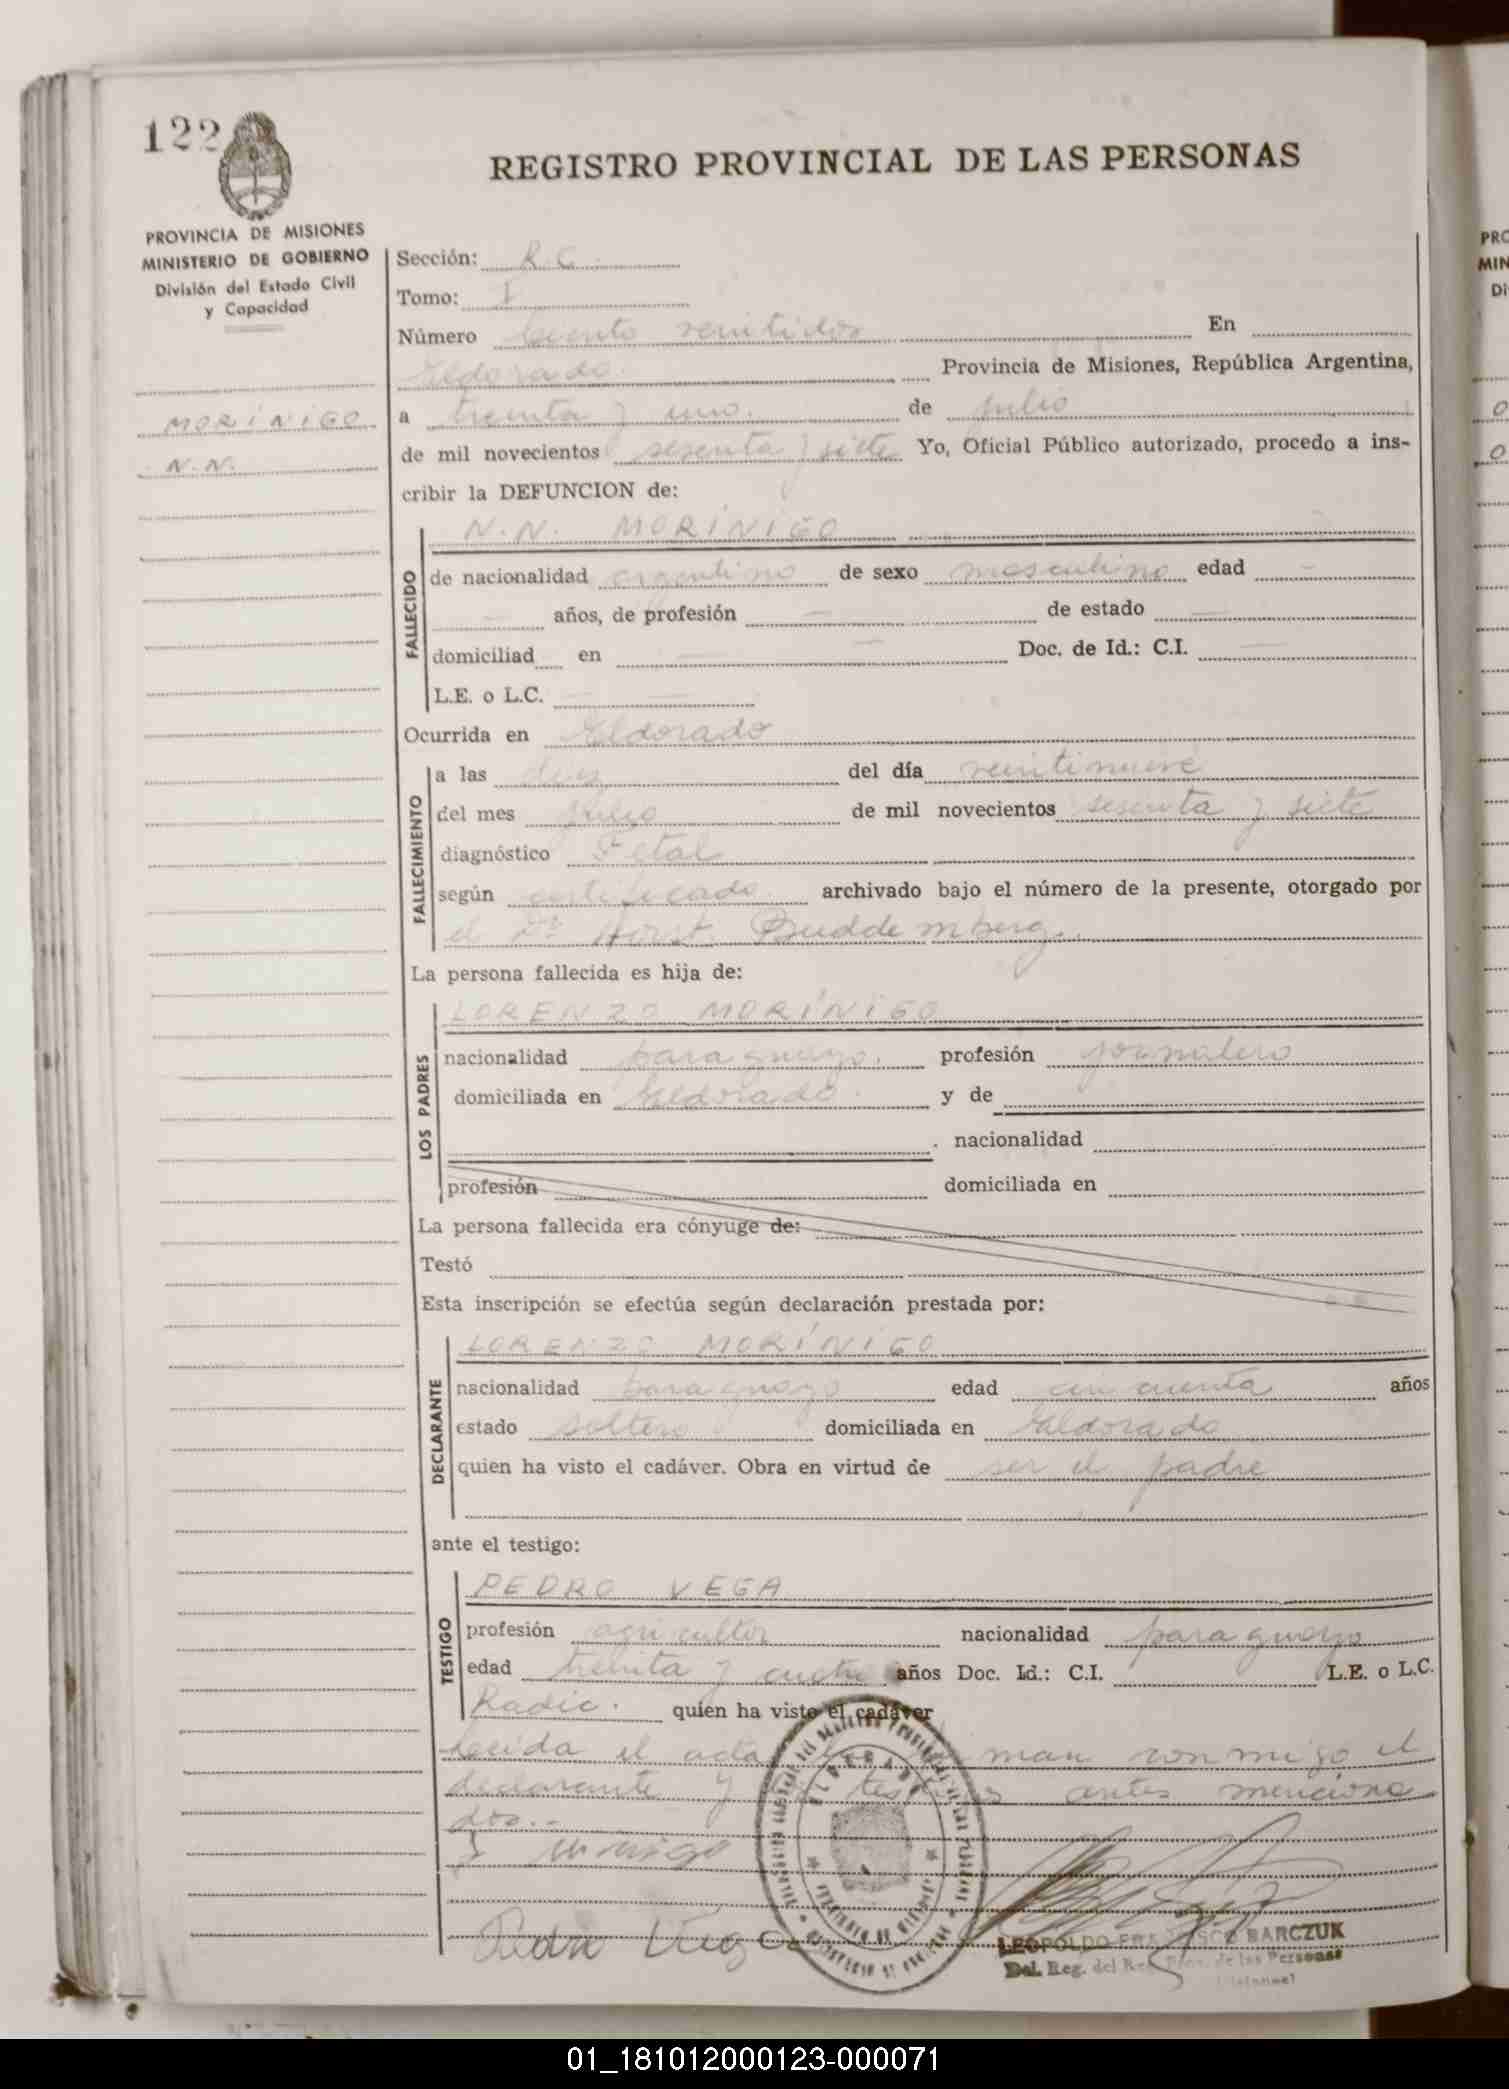 122
REGISTRO PROVINCIAL DE LAS PERSONAS
PROVINCIA DE MISIONES
MINISTERIO DE GOBIERNO
División del Estado Civil
y Capacidad
MORÍNIGO
N.N.
Sección: R.C.
Tomo: I
Número Ciento veintidos En
Eldorado. Provincia de Misiones, República Argentina,
a treinta y uno. de julio
de mil novecientos sesenta y siete Yo, Oficial Público autorizado, procedo a ins-
cribir la DEFUNCION de:
FALLECIDO
N.N. MORÍNIGO
de nacionalidad argentino de sexo masculino edad —
— años, de profesión — de estado —
domiciliad en — — Doc. de Id.: C.I. —
L.E. o L.C. — —
Ocurrida en Eldorado
FALLECIMIENTO
a las diez del día veintinueve
del mes julio de mil novecientos sesenta y siete
diagnóstico Fetal
según certificado archivado bajo el número de la presente, otorgado por
el Dr Horst Buddemberg.
La persona fallecida es hija de:
LOS PADRES
LORENZO MORÍNIGO
nacionalidad paraguayo. profesión jornalero
domiciliada en Eldorado. y de
nacionalidad
profesión domiciliada en
La persona fallecida era cónyuge de:
Testó
Esta inscripción se efectúa según declaración prestada por:
DECLARANTE
LORENZO MORÍNIGO
nacionalidad paraguayo edad cincuenta años
estado soltero domiciliada en Eldorado
quien ha visto el cadáver. Obra en virtud de ser el padre
ante el testigo:
TESTIGO
PEDRO VEGA
profesión agricultor nacionalidad paraguayo
edad treinta y cuatro años Doc. Id.: C.I. L.E. o L.C.
Radic. quien ha visto el cadáver
Leida el acta man conmigo el
declarante y testigos antes menciona
dos.-
Pedro Vega
LEOPOLDO FRANCISCO BARCZUK
Del. Reg. del Reg. Prov. de las Personas
01_181012000123-000071